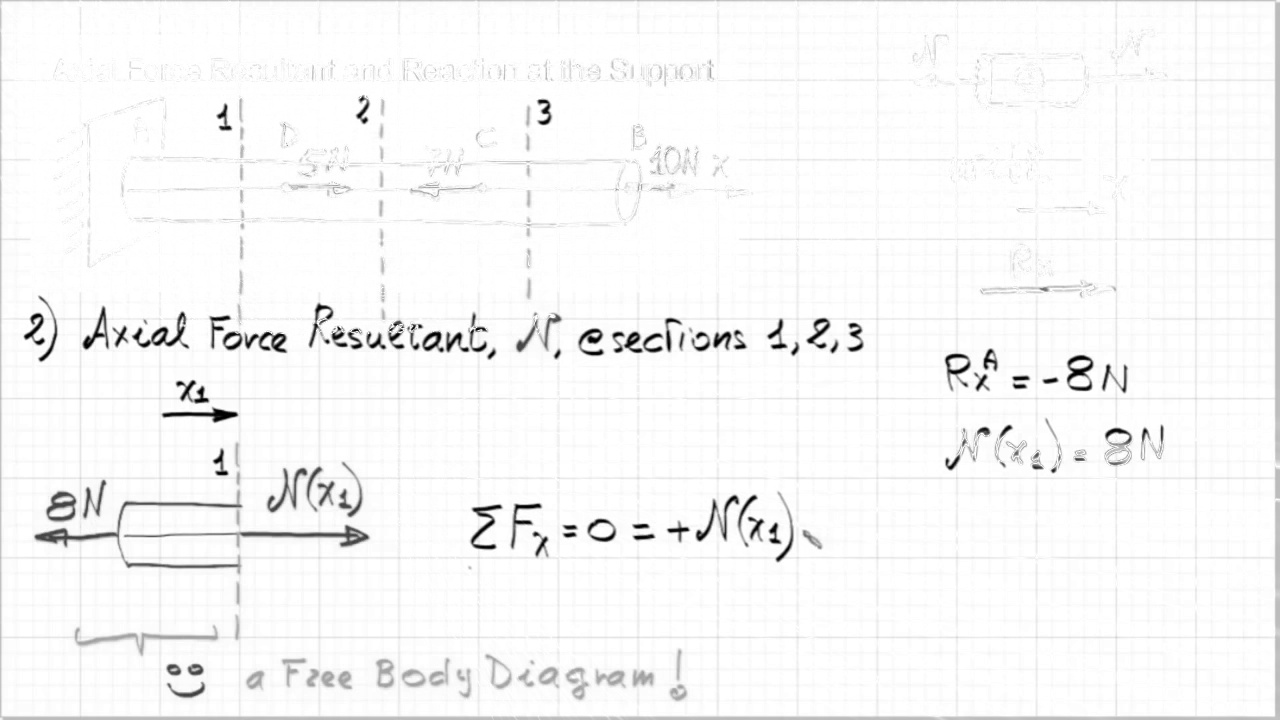 Axial Force Resultant and Reaction at the Support
1 2 3
A D C B
5N 7N 10N x
N N
x
Rx
2) Axial Force Resultant, N, @ sections 1, 2, 3
x₁
1
8N N(x₁)
ΣFₓ = 0 = +N(x₁)
Rₓᴬ = -8N
N(x₁) = 8N
a Free Body Diagram!